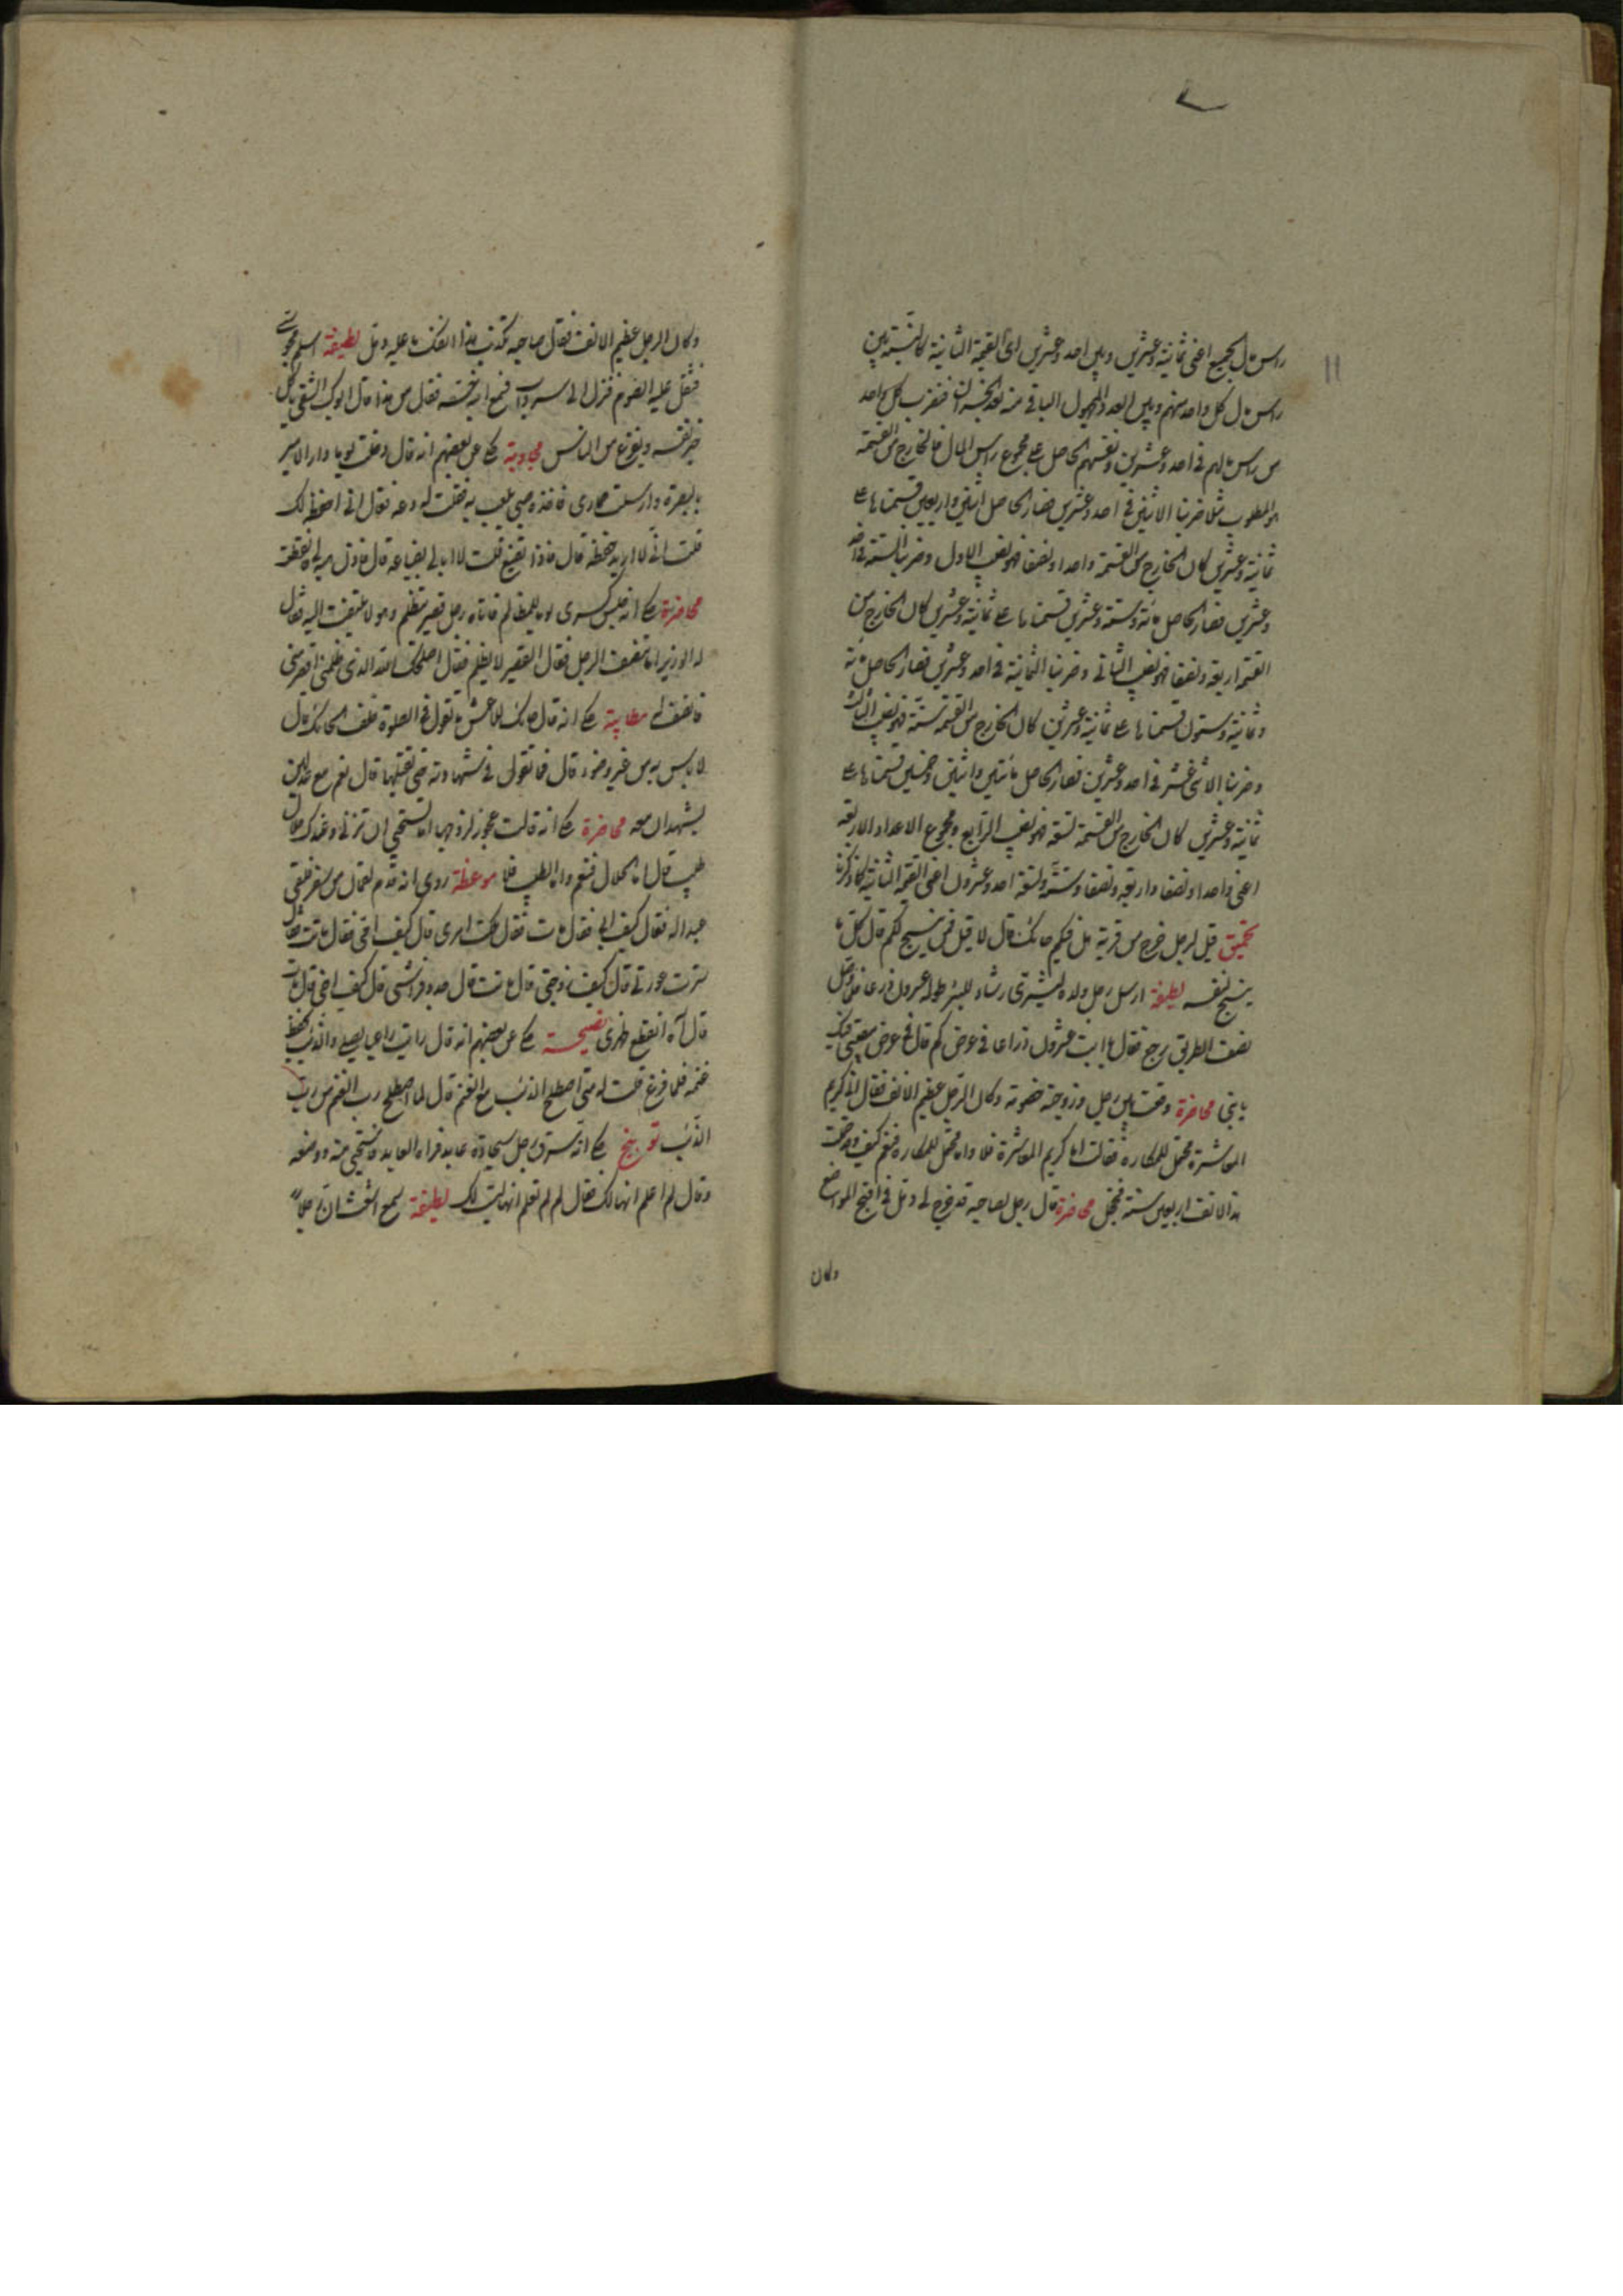 راس مال الجميع اعنى ثمانية وعشرين وبين احد وعشرين اى القيمة الثانية كالنسبة بين
راس مال كل واحد منهم وبين العدد المجهول الباقى منه بعد الخسران فنضرب كل واحد
من راس مالهم فى احد وعشرين ونقسم الحاصل على مجموع راس المال فالخارج من القسمة
هو المطلوب مثلا ضربنا الاثنين فى احد وعشرين فصار الحاصل اثنين واربعين قسمناها على
ثمانية وعشرين كان الخارج من القسمة واحدا ونصفا فهو نصيب الاول وضربنا الستة فى احد
وعشرين فصار الحاصل مائة وستة وعشرين قسمناها على ثمانية وعشرين كان الخارج من
القسمة اربعة ونصفا فهو نصيب الثانى وضربنا الثمانية فى احد وعشرين فصار الحاصل مائة
وثمانية وستون قسمناها على ثمانية وعشرين كان الخارج من القسمة ستة فهو نصيب الثالث
وضربنا الاثنى عشر فى احد وعشرين فصار الحاصل مائتين واثنين وخمسين قسمناها على
ثمانية وعشرين كان الخارج من القسمة تسعة فهو نصيب الرابع ومجموع الاعداد الاربعة
اعنى واحدا ونصفا واربعة ونصفا وستة وتسعة احد وعشرون اعنى القيمة الثانية كما ذكرنا
تحميق قيل لرجل خرج من قرية هل فيكم حائك قال لا قيل فمن ينسج لكم قال كل منا
ينسج لنفسه لطيفة ارسل رجل ولده ليشترى رشاء للبئر طوله عشرون ذرعا فلما وصل
نصف الطريق رجع فقال يا ابت عشرون ذراعا فى عرض كم قال فى عرض مصيبتى فيك
يا بنى محاضرة وقعت بين رجل وزوجته خصومة وكان الرجل عظيم الانف فقال انا كريم
المعاشرة محتمل للمكاره فقالت اما كريم المعاشرة فلا واما محتمل للمكاره فنعم كيف وقد حملت
هذا الانف اربعين سنة فخجل محاضرة قال رجل لصاحبه قد خرج لى دمل فى اقبح المواضع
وكان
وكان الرجل عظيم الانف فقال صاحبه كذبت هذا انفك ما عليه دمل لطيفة اسلم مجوسى
فثقل عليه الصوم فنزل الى سرداب فسمع ابنه حسه فقال من هذا قال ابوك الشقى ياكل
خبز نفسه ويفزع من الناس مجاوبة حكى عن بعضهم انه قال دخلت يوما دار الامير
بالبصرة وارسلت حمارى فاخذه صبى يلعب به فقلت له دعه فقال انى احفظه لك
قلت انى لا اريد حفظه قال فاذا يضيع قلت لا ابالى بضياعه قال فاذن هبه لى فانقطعت
محاضرة حكى انه جلس كسرى يوما للمظالم فاتاه رجل قصير متظلم وهو لا يلتفت اليه فقال
له الوزير انصف الرجل فقال القصير لا يظلم فقال اصلحك الله الذى ظلمنى اقصر منى
فانصف له مطايبة حكى انه قال حائك للاعمش ما تقول فى الصلوة خلف الحائك قال
لا باس به من غير وضوء قال فما تقول فى شهادته حتى تقبلها قال نعم مع عدلين
يشهدان معه محاضرة حكى انه قالت عجوز لزوجها اما تستحيى ان تزنى وعندك حلال
طيب قال اما الحلال فنعم واما الطيب فلا موعظة روى انه قدم لقمان من سفر فلقى
عبدا له فقال كيف ابى فقال مات فقال ملكت امرى قال كيف امى فقال ماتت فقال
سترت عورتى قال كيف زوجتى قال ماتت قال جدد فراشى قال كيف اخى قال مات
قال آه انقطع ظهرى نصيحة حكى عن بعضهم انه قال رايت راعيا يصلى والذئب يحفظ
غنمه فلما فرغ قلت له متى اصطلح الذئب مع الغنم قال لما اصطلح رب الغنم مع رب
الذئب توبيخ حكى انه سرق رجل سجادة عابد فراه العابد فاستحيى منه ووضعه
وقال لم اعلم انها لك فقال لم لم تعلم انها ليست لك لطيفة سمع رجلا